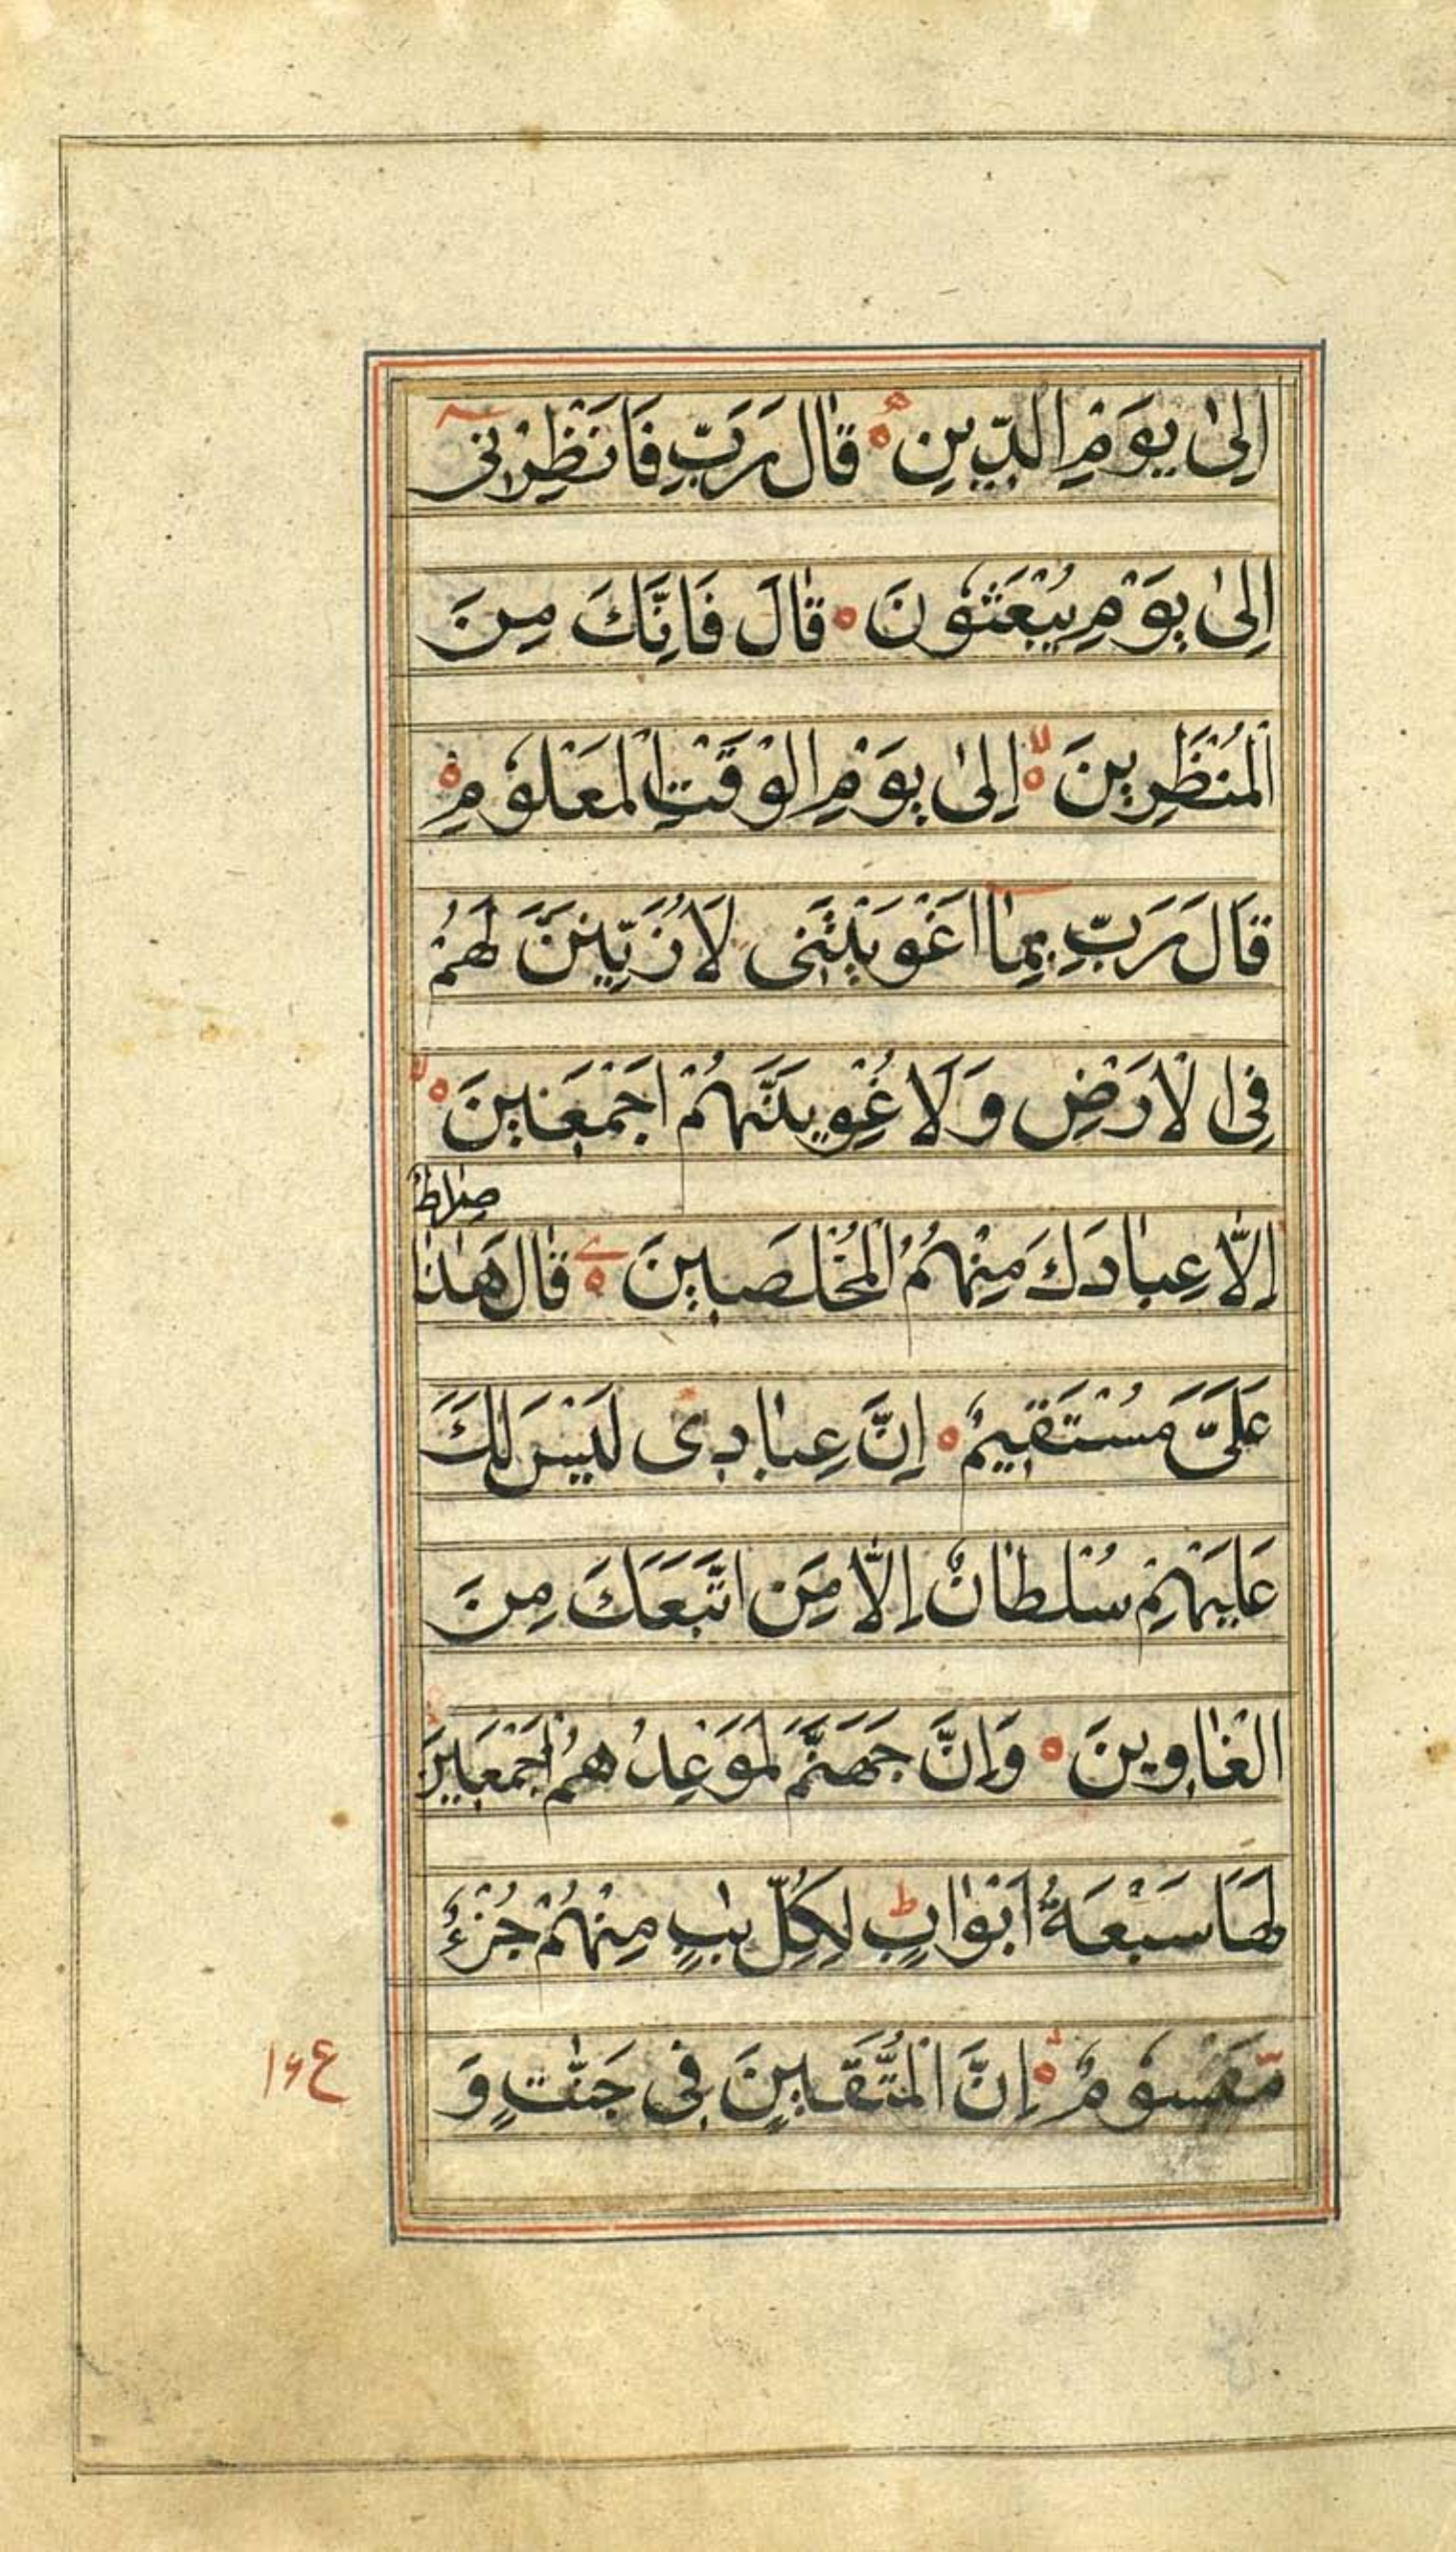 اِلىٰ يَوْمِ الدِّينِ ۝ قَالَ رَبِّ فَانْظِرْنِى
اِلىٰ يَوْمِ يُبْعَثُونَ ۝ قَالَ فَاِنَّكَ مِنَ
الْمُنْظَرِينَ ۝ اِلىٰ يَوْمِ الْوَقْتِ الْمَعْلُومِ ۝
قَالَ رَبِّ بِمَا اَغْوَيْتَنِى لَاُزَيِّنَنَّ لَهُمْ
فِى الْاَرْضِ وَلَاُغْوِيَنَّهُمْ اَجْمَعِينَ ۝
صِرَاطٌ
اِلَّا عِبَادَكَ مِنْهُمُ الْمُخْلَصِينَ ۝ قَالَ هٰذَا
عَلَىَّ مُسْتَقِيمٌ ۝ اِنَّ عِبَادِى لَيْسَ لَكَ
عَلَيْهِمْ سُلْطَانٌ اِلَّا مَنِ اتَّبَعَكَ مِنَ
الْغَاوِينَ ۝ وَاِنَّ جَهَنَّمَ لَمَوْعِدُهُمْ اَجْمَعِينَ
لَهَا سَبْعَةُ اَبْوَابٍ ط لِكُلِّ بَابٍ مِنْهُمْ جُزْءٌ
مَّقْسُومٌ ۝ اِنَّ الْمُتَّقِينَ فِى جَنّٰتٍ وَ